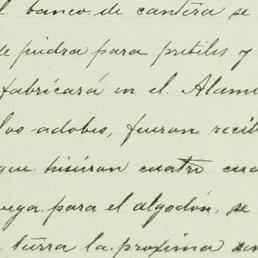 l banco de cantera se
de piedra para pretiles y
fabricará en el Alam
los adobes, fueron recib
que hisieran cuatro cua
vega para el algodón, se
tierra la proxima sem